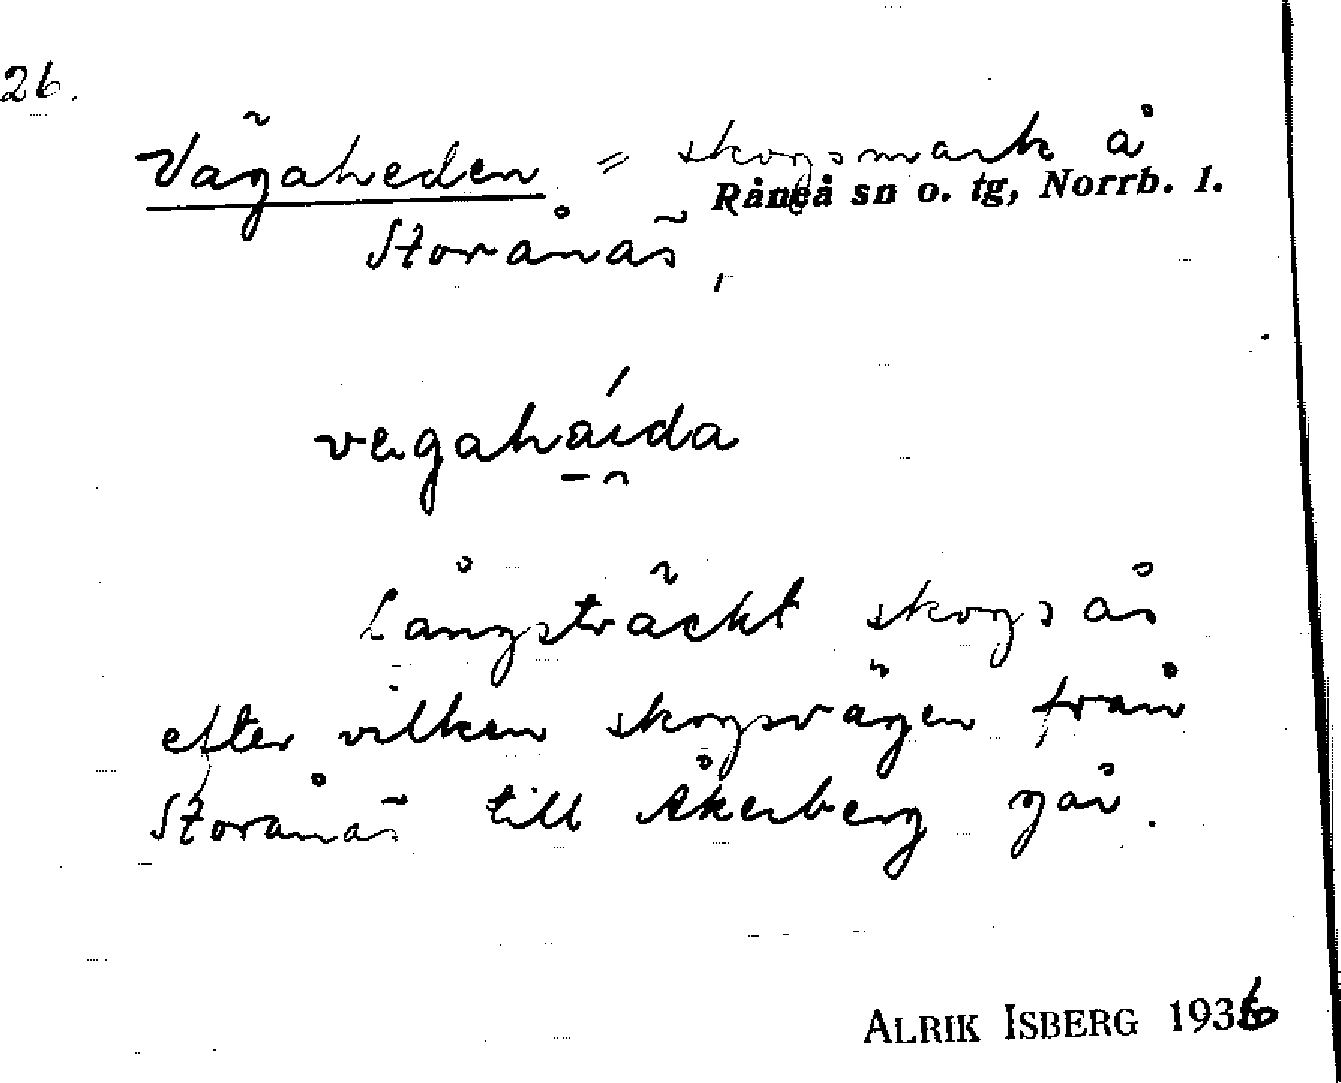 26.
Vägaheden = skogsmark å
Råneå sn o. tg, Norrb. l.
Storånäs,
vegahaida
Långsträckt skogsås
efter vilken skogsvägen från
Storånäs till Åkerberg går.
ALRIK ISBERG 1936